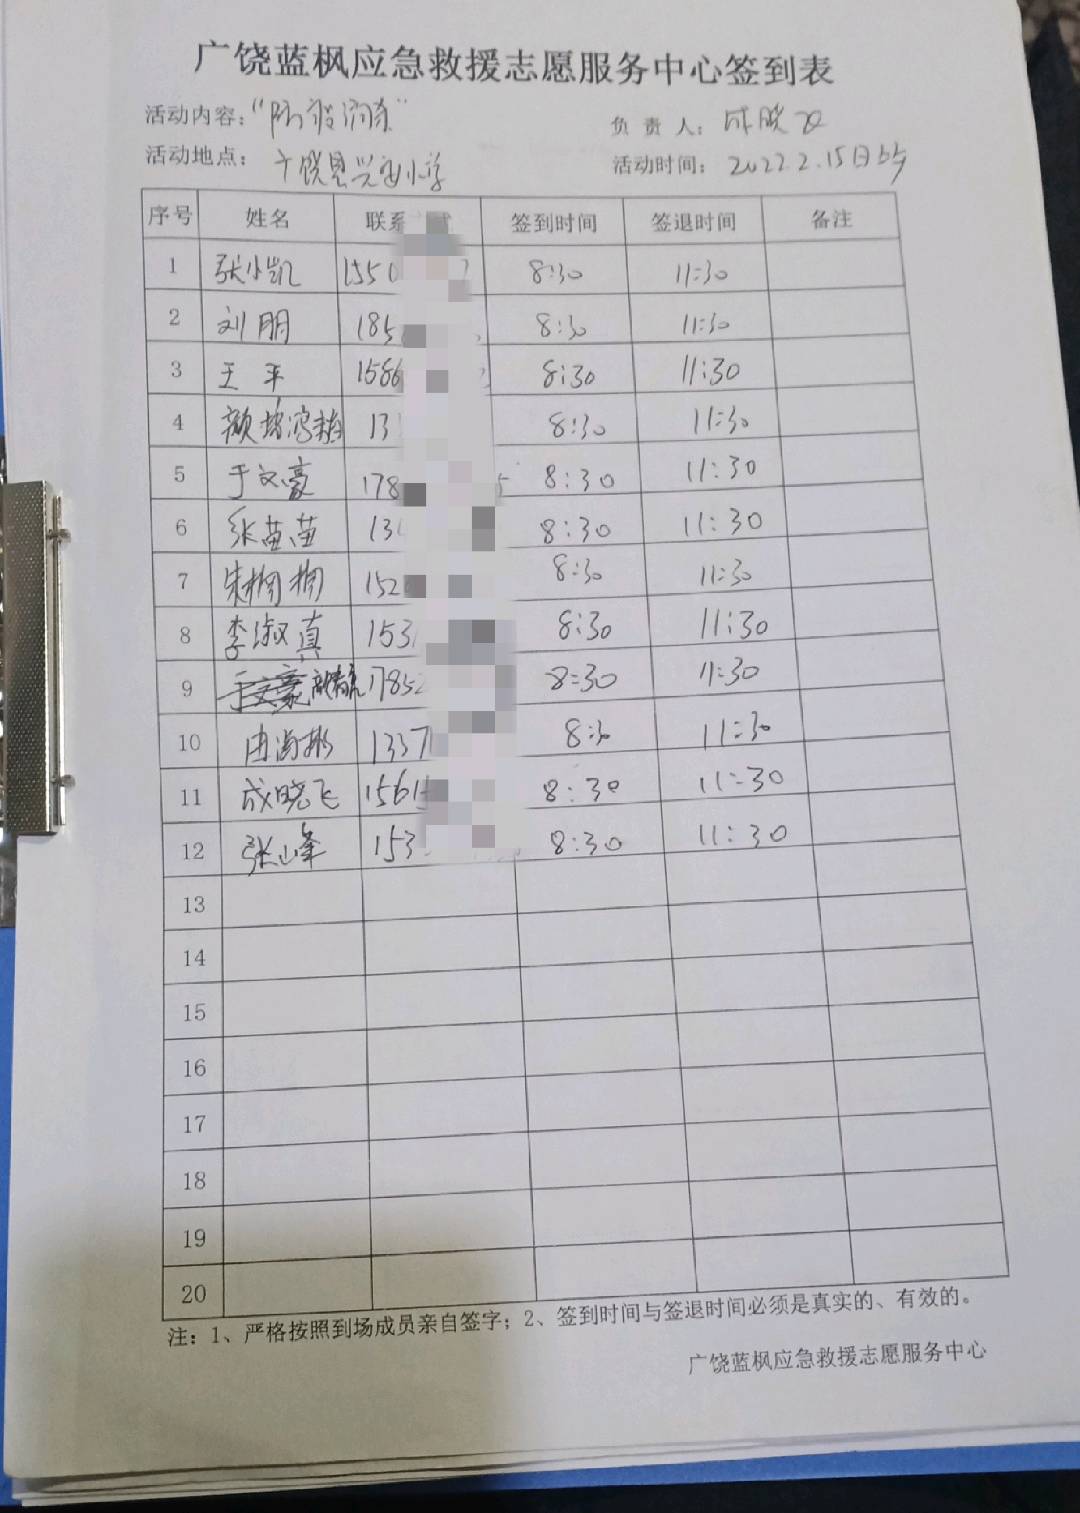 广饶蓝枫应急救援志愿服务中心签到表
活动内容：“防 演练” 负责人：成晓飞
活动地点：广饶县兴安小学 活动时间：2022.2.15日
序号 姓名 联系 签到时间 签退时间 备注
1 张小凯 1550 8:30 11:30
2 刘朋 185 8:30 11:30
3 王平 1586 8:30 11:30
4 颜 13 8:30 11:30
5 于文豪 178 5 8:30 11:30
6 张苗苗 13 8:30 11:30
7 朱楠楠 152 8:30 11:30
8 李淑真 153 8:30 11:30
9 于文豪 1785 8:30 11:30
10 由海彬 1337 8:30 11:30
11 成晓飞 1561 8:30 11:30
12 张山峰 153 8:30 11:30
13
14
15
16
17
18
19
20
注：1、严格按照到场成员亲自签字；2、签到时间与签退时间必须是真实的、有效的。
广饶蓝枫应急救援志愿服务中心